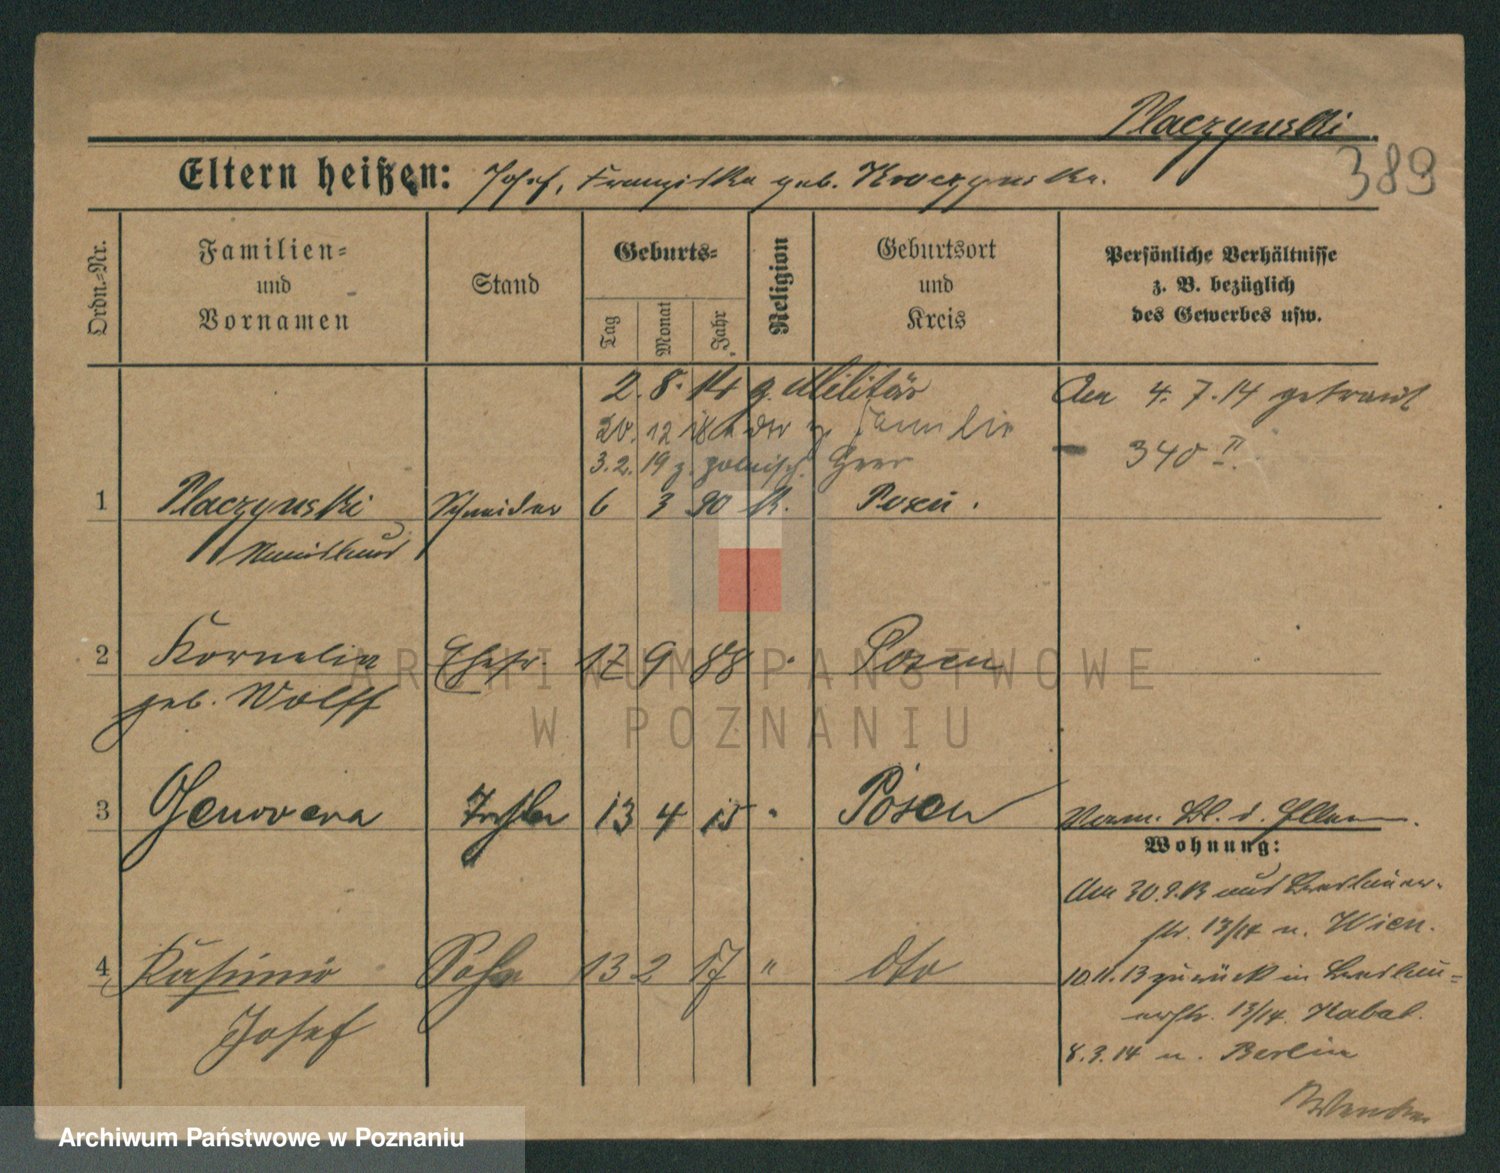 Placzynski
389
Eltern heißen: Josef, Franziska geb. Kroczynska.
Ordn.-Nr.
Familien-
und
Vornamen
Stand
Geburts-
Tag
Monat
Jahr
Religion
Geburtsort
und
Kreis
Persönliche Verhältnisse
z. B. bezüglich
des Gewerbes usw.
2. 8. 14 z. Militär
20. 12 18 wieder z Familie
3. 2. 19 z. polnisch. Heer
Am 4. 7. 14 getraut
340 II.
1 Placzynski Schneider 6 3 90 K. Posen.
2 Kornelia Ehefr. 17 9 88 " Posen
geb. Wolff
3 Genoveva Tochter 13 4 15 " Posen
Verm. Bl. d. Eltern.
Wohnung:
Am 30.9.13 aus Breslauer-
str. 13/14 n. Wien.
4 Kasimir Sohn 13 2 17 " dto
Josef
10.11.13 zurück in Breslau-
erstr. 13/14.
8.3.14 n. Berlin
ARCHIWUM PAŃSTWOWE
W POZNANIU
Archiwum Państwowe w Poznaniu